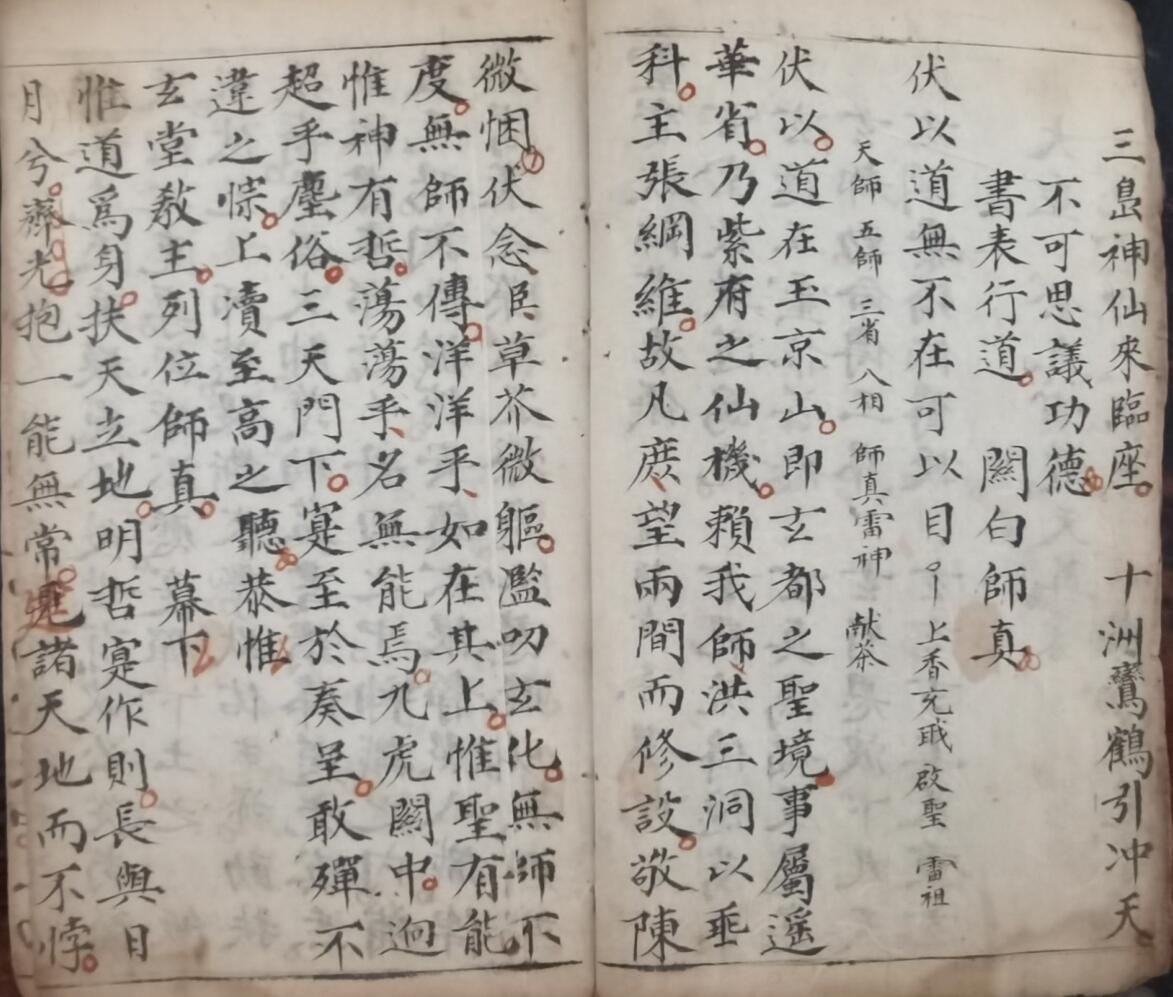 三島神仙來臨座十洲鸞鶴引冲天
不可思議功德
書表行道 關白師真
伏以道無不在可以目 上香充 啟聖 雷祖
天師 五師 三省 八相 師真雷神 献茶
伏以道在玉京山即玄都之聖境事屬遥
華省乃紫府之仙機賴我師洪三洞以垂
科主張綱維故凡庶望兩間而修設敬陳
微悃伏念臣草芥微軀濫叨玄化無師不
度無師不傳洋洋乎如在其上惟聖有能
惟神有哲蕩蕩乎名無能焉九虎關中迥
超乎塵俗三天門下寔至於奏呈敢殫不
違之悰上瀆至高之聽恭惟
玄堂教主列位師真 幕下
惟道爲身扶天立地明哲寔作則長與日
月兮齊光抱一能無常見諸天地而不悖